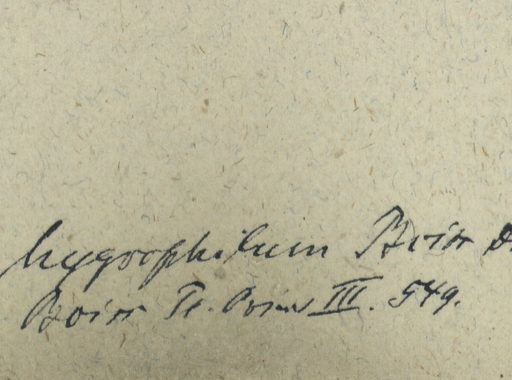 hygrophilum Boiss D
Boiss Fl. Orient III. 549.